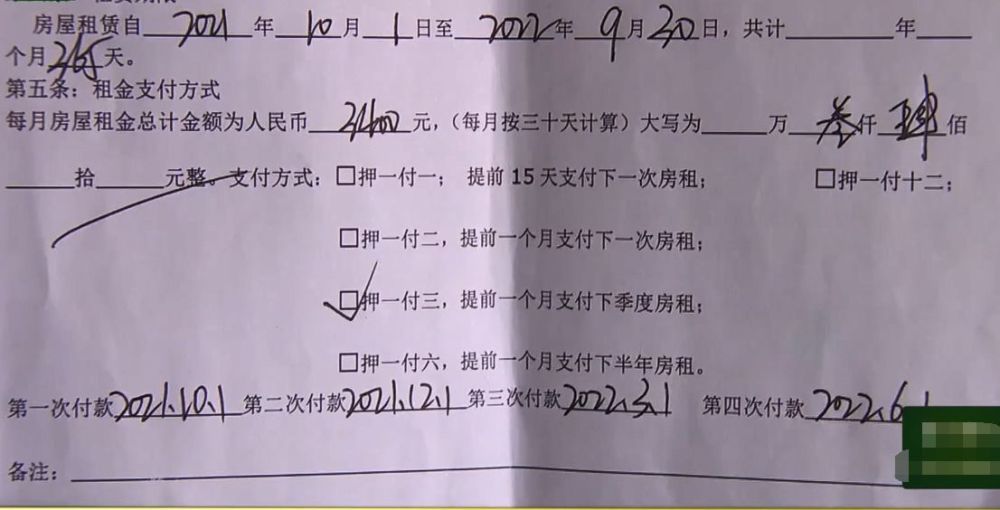 房屋租赁自 2021 年 10 月 1 日至 2022 年 9 月 30 日，共计____年____
个月365天。
第五条：租金支付方式
每月房屋租金总计金额为人民币 3400 元，（每月按三十天计算）大写为____万 叁 仟 肆 佰
____拾____元整。支付方式：□押一付一； 提前 15 天支付下一次房租； □押一付十二；
□押一付二，提前一个月支付下一次房租；
☑押一付三，提前一个月支付下季度房租；
□押一付六，提前一个月支付下半年房租。
第一次付款2021.10.1 第二次付款2021.12.1 第三次付款2022.3.1 第四次付款2022.6.1
备注：